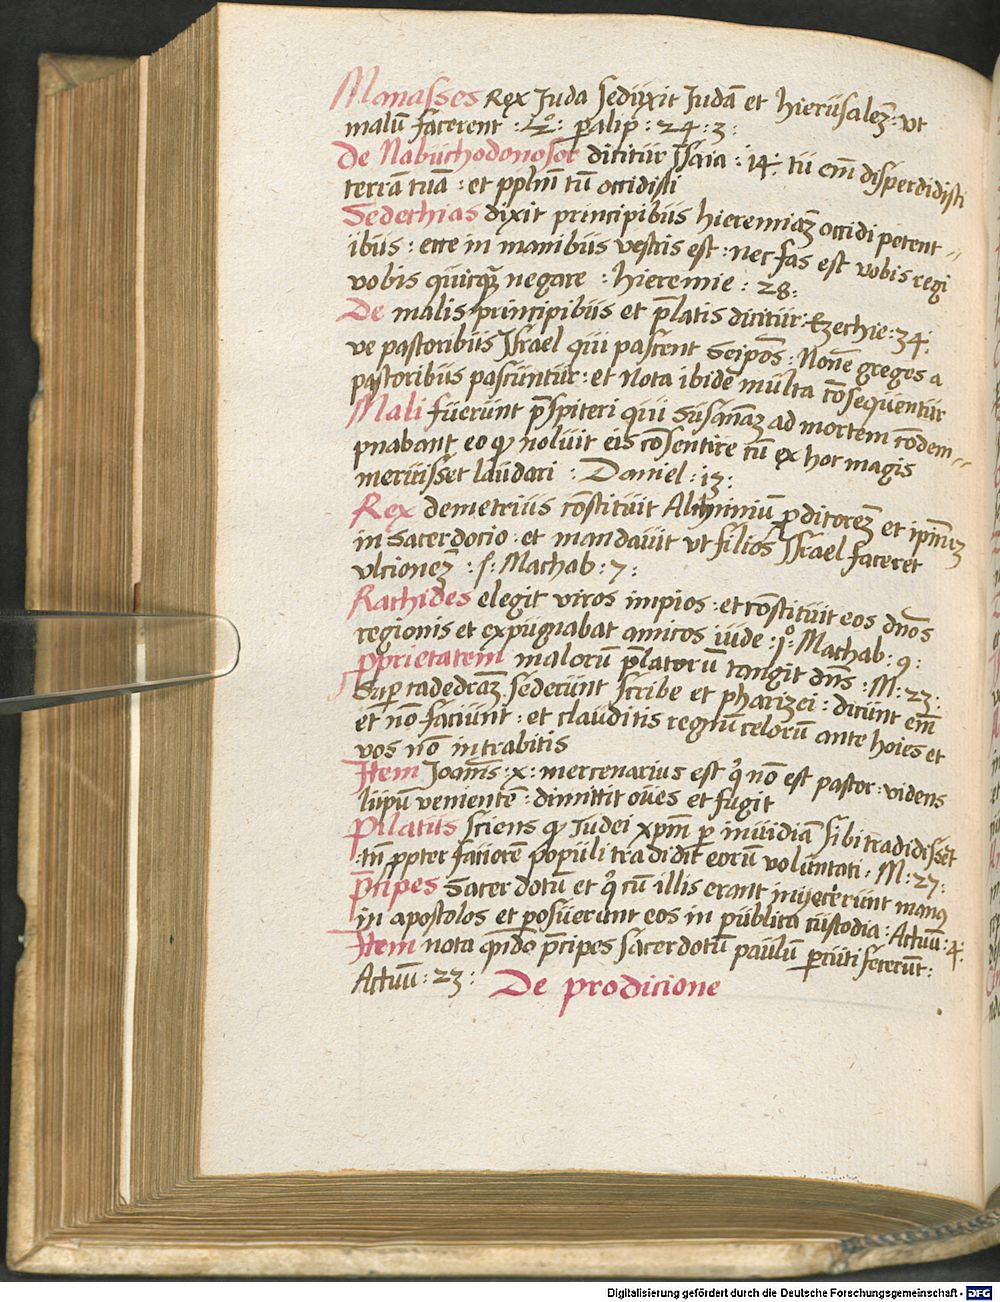 Manasses Rex Juda seduxit Judā et hierusalez : ut
malū facerent : 2º : paralip : 24 : 3 :
De Nabuchodonosor dicitur Jsaia : 14 : tu em̄ disperdidisti
terrā tuā : et pplm̄ tuū occidisti
Sedechias dixit principibus hieremiaz occidi petent-
ibus : ecce in manibus vestris est : nec fas est vobis regi
vobis quicq̄ negare : hieremie : 28 :
De malis principibus et p̄latis dicitur Ezechie : 34 :
ve pastoribus Jsrael qui pascent seipos : Nonē greges a
pastoribus pascuntur : et Nota ibidē multa cōsequentur
Mali fuerunt p̄sbiteri qui Susannaz ad mortem cōdem-
pnabant eo q noluit eis cōsentire cū ex hoc magis
meruisset laudari : Daniel : 13 :
Rex demetrius cōstituit Alchiminū proditorez et ip̄m
in Sacerdocio : et mandavit ut filios Jsrael faceret
ulcionez : 1 : Machab : 7 :
Bachides elegit viros impios : et cōstituit eos dn̄os
regionis et expugnabat amicos iude : 1º : Machab : 9 :
proprietatem malorū p̄latorū tangit dn̄s : M : 23 :
Super cadedraz sederunt scribe et pharizei : dicunt em̄
et nō faciunt : et clauditis regnū celorū ante hoīes et
vos nō intrabitis
Item Joannis : x : mercenarius est q nō est pastor : videns
lupū venientē : dimittit oves et fugit
Pilatus sciens q Judei xpm̄ per invidiā sibi tradidisset
tn̄ propter favorē populi tradidit eorū voluntati : M : 27 :
Prīcipes Sacerdotū et q cū illis erant iniecerunt manus
in apostolos et posuerunt eos in publica custodia : Actuū : 4 :
Item nota qn̄do prīcipes sacerdotū paulū percuti fecerūt :
Actuū : 23 : De prodicione
Digitalisierung gefördert durch die Deutsche Forschungsgemeinschaft - DFG